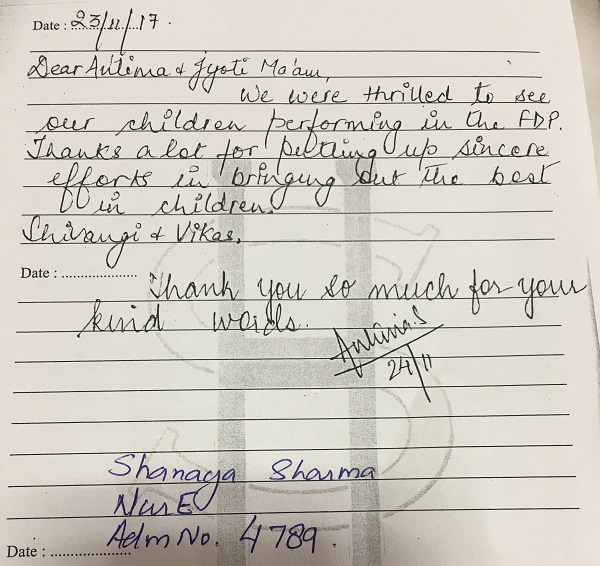 Date : 23/11/17.
Dear Antima & Jyoti Ma'am,
We were thrilled to see
our children performing in the FDP.
Thanks a lot for putting up sincere
efforts in bringing out the best
in children.
Shivangi & Vikas.
Date : ....................
Thank you so much for your
kind words.
Antima.S
24/11
Shanaya Sharma
Nur E
Adm No. 4789.
Date : ....................